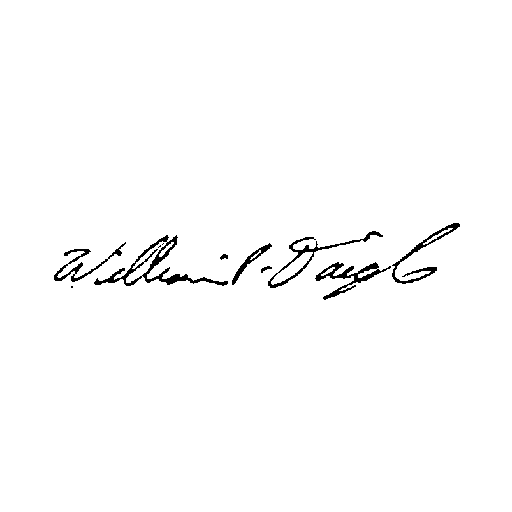 William P. Daigle